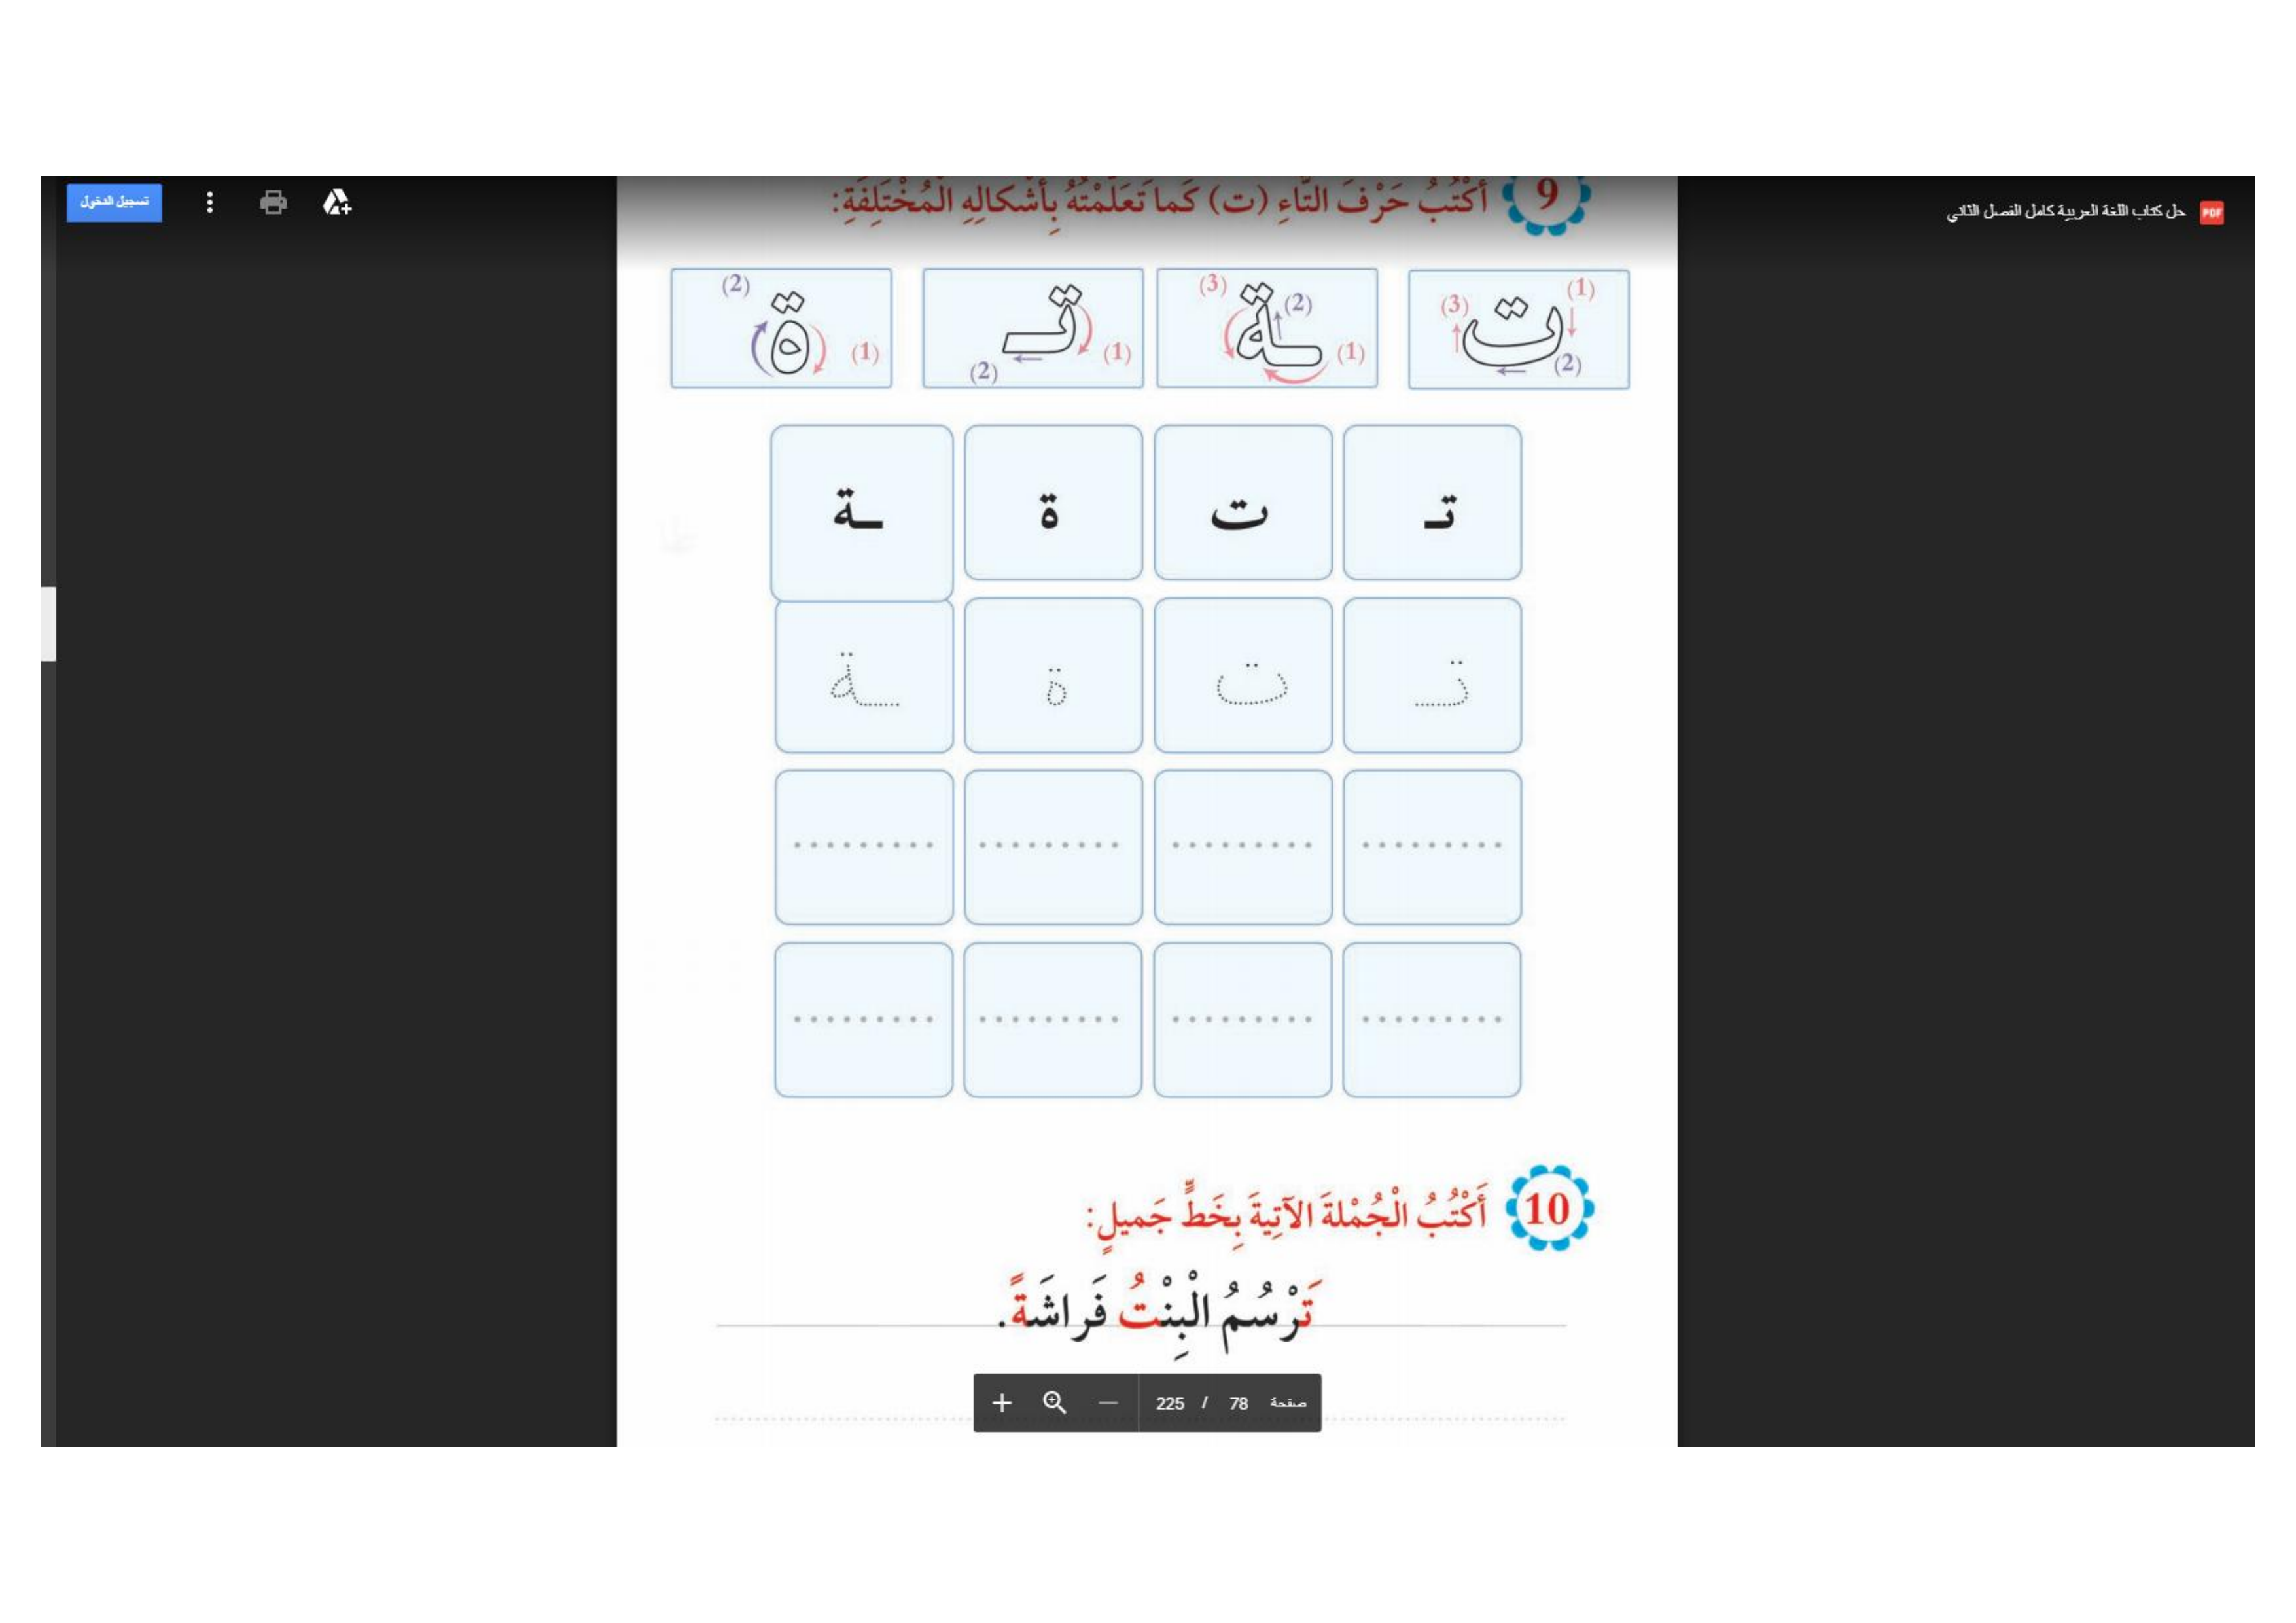 حل كتاب اللغة العربية كامل الفصل الثاني
PDF
تسجيل الدخول
9 أَكْتُبُ حَرْفَ التّاءِ (ت) كَما تَعَلَّمْتُهُ بِأَشْكالِهِ الْمُخْتَلِفَةِ:
(1) (2) (3) ت
(1) (2) (3) ـة
(1) (2) تـ
(1) (2) ة
تـ ت ة ـة
تـ ت ة ـة
10 أَكْتُبُ الْجُمْلةَ الآتِيةَ بِخَطٍّ جَميلٍ:
تَرْسُمُ الْبِنْتُ فَراشَةً.
صفحة 78 / 225